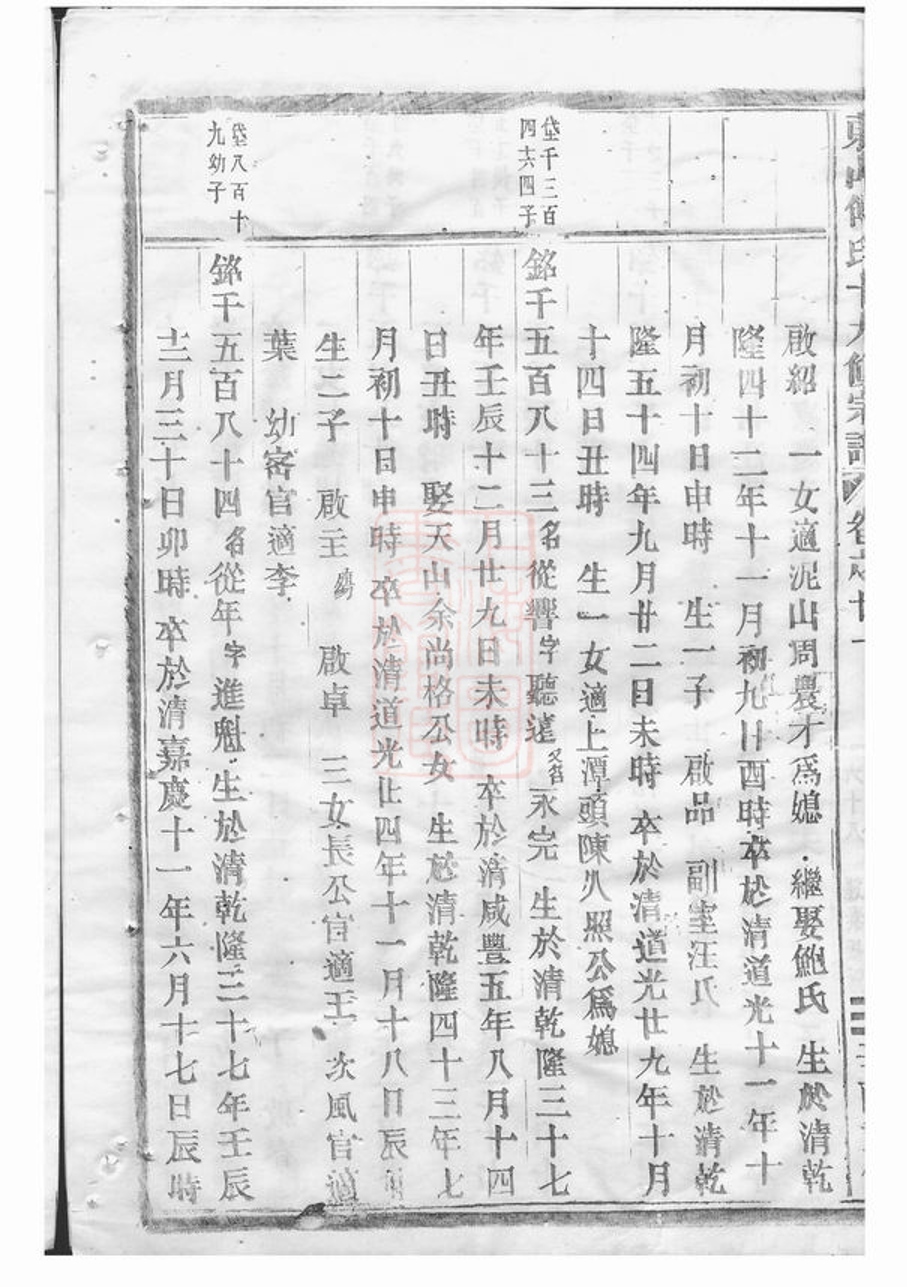 氏十九修宗譜
啟紹 一女適泥山周農才爲媳 繼娶鮑氏 生於清乾
隆四十二年十一月初九日酉時卒於清道光十一年十
月初十日申時 生一子 啟品 副室汪氏 生於清乾
隆五十四年九月廿二日未時 卒於清道光廿九年十月
十四日丑時 生一女適上潭頭陳 照公爲媳
垈千三百
四十六四子
銘千五百八十三名從響字聽遠又名永完 生於清乾隆三十七
年壬辰十二月廿九日未時 卒於清咸豐五年八月十四
日丑時 娶天山余尚格公女 生於清乾隆四十三年七
月初十日申時 卒於清道光廿四年十一月十八日辰時
生二子 啟主 啟卓 三女長公官適王 次風官適
葉 幼容官適李
垈八百十
九幼子
銘千五百八十四名從年字進魁 生於清乾隆三十七年壬辰
十二月三十日卯時 卒於清嘉慶十一年六月十七日辰時